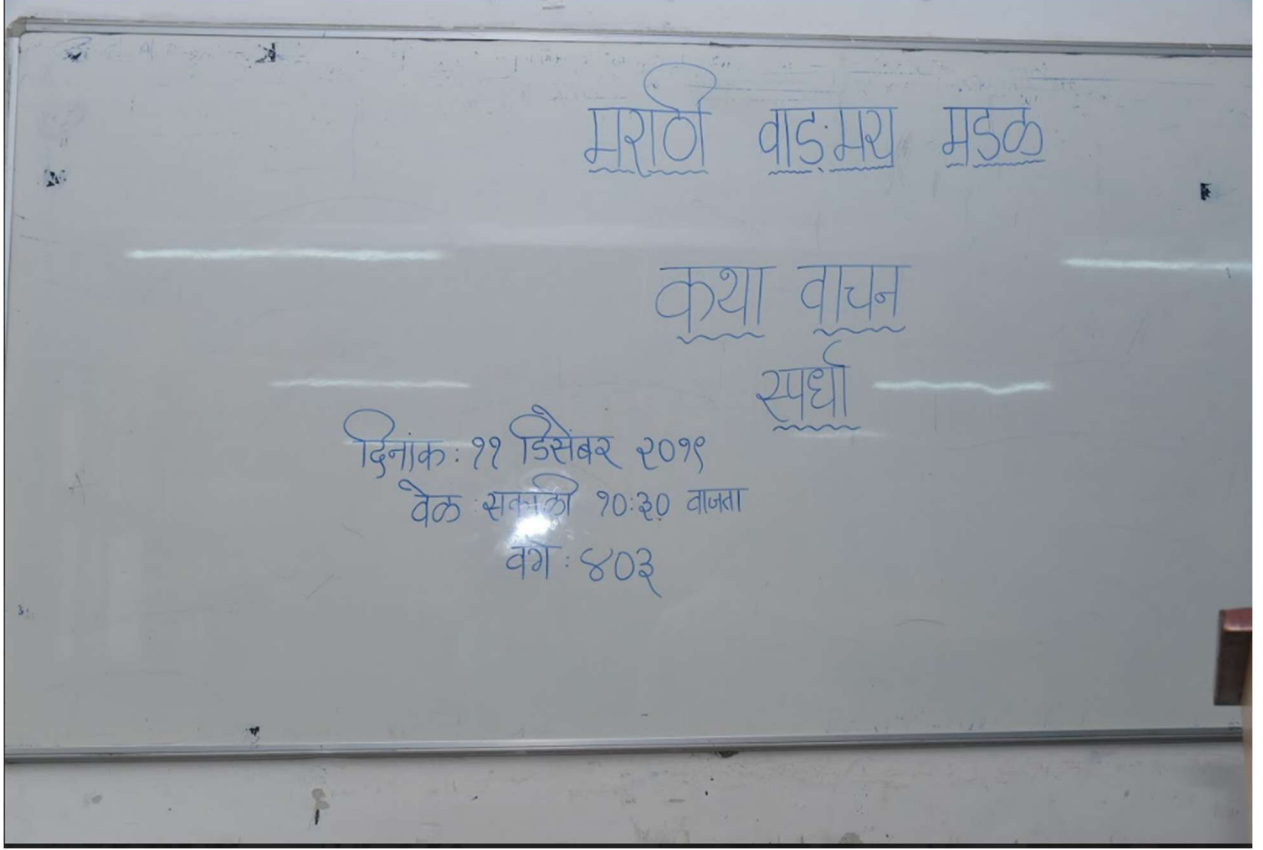 मराठी वाङ्मय मंडळ
कथा वाचन
स्पर्धा
दिनांक : ११ डिसेंबर २०१९
वेळ : सकाळी १०:३० वाजता
वर्ग : ४०३